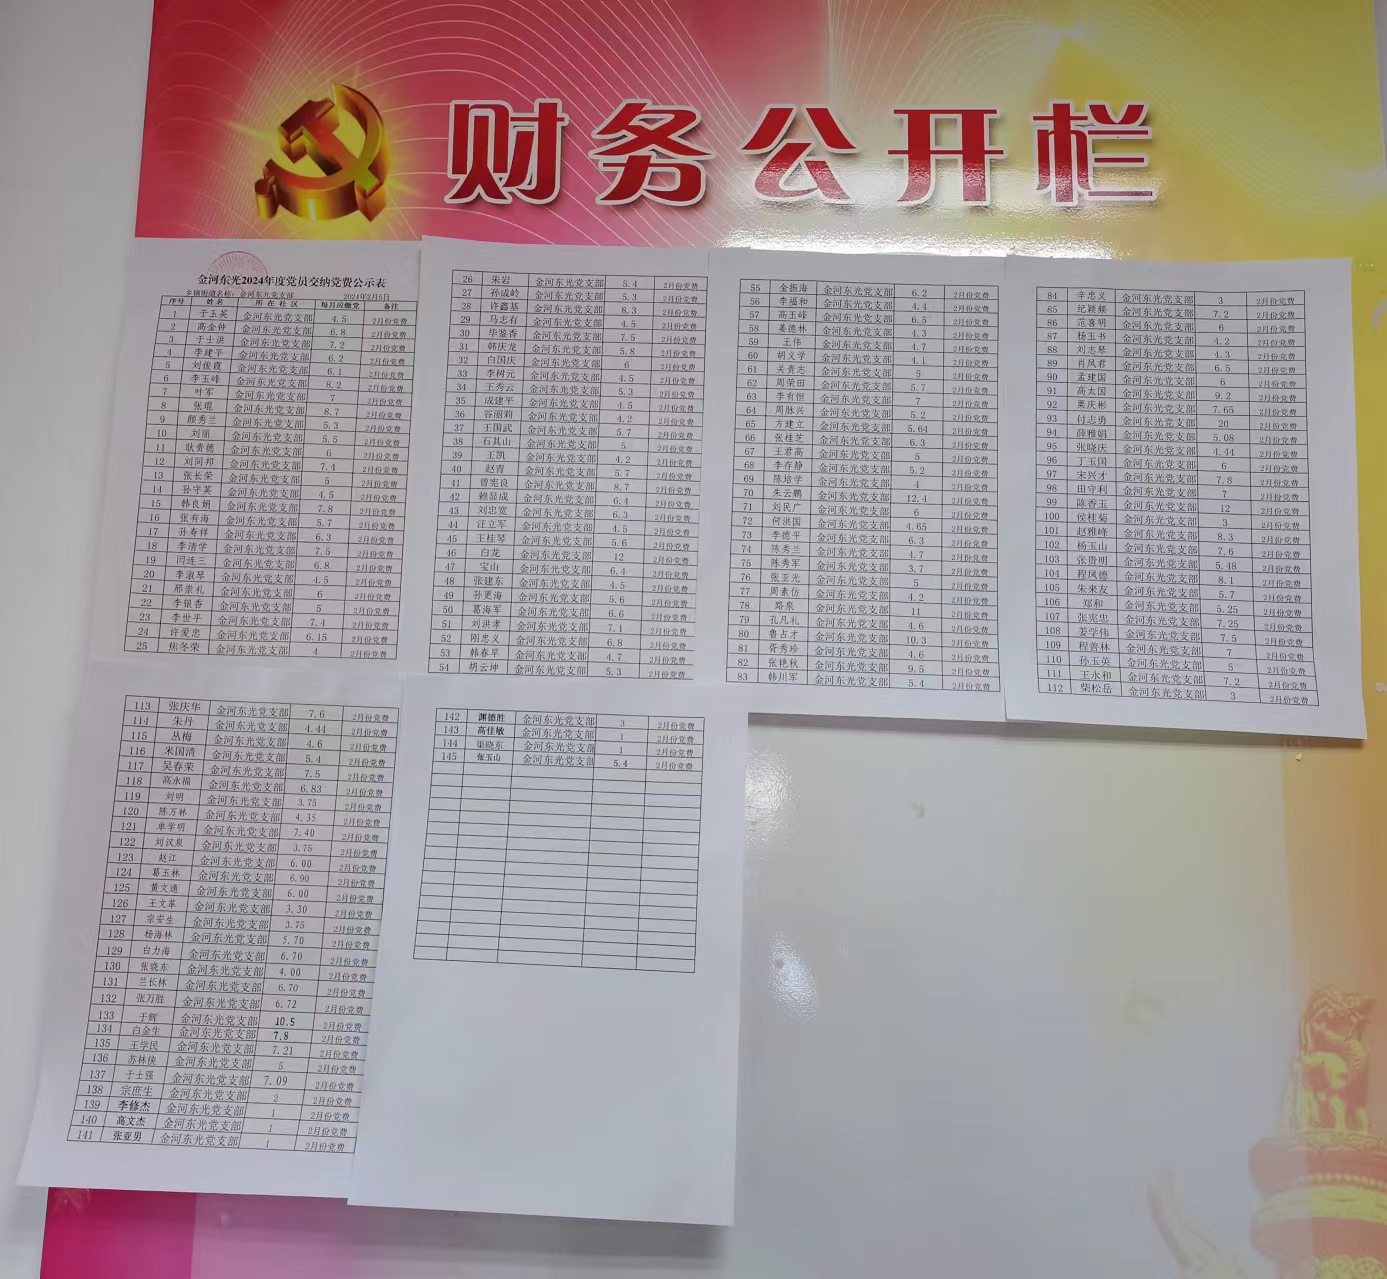 财务公开栏
金河东光2024年度党员交纳党费公示表
乡镇街道名称：金河东光党支部 2024年2月5日
序号 姓名 所在社区 每月应缴党 备注
1 于玉英 金河东光党支部 4.5 2月份党费
2 高金钟 金河东光党支部 6.8 2月份党费
3 于士洪 金河东光党支部 7.2 2月份党费
4 李建平 金河东光党支部 6.2 2月份党费
5 刘俊霞 金河东光党支部 6.1 2月份党费
6 李玉峰 金河东光党支部 8.2 2月份党费
7 叶军 金河东光党支部 7 2月份党费
8 张琨 金河东光党支部 8.7 2月份党费
9 颜秀兰 金河东光党支部 5.3 2月份党费
10 刘丽 金河东光党支部 5.5 2月份党费
11 耿贵德 金河东光党支部 6 2月份党费
12 刘同邦 金河东光党支部 7.4 2月份党费
13 张长荣 金河东光党支部 5 2月份党费
14 孙守英 金河东光党支部 4.5 2月份党费
15 韩良娟 金河东光党支部 7.8 2月份党费
16 张有海 金河东光党支部 5.7 2月份党费
17 孙寿祥 金河东光党支部 6.3 2月份党费
18 李清学 金河东光党支部 7.5 2月份党费
19 闫连三 金河东光党支部 6.8 2月份党费
20 李淑琴 金河东光党支部 4.5 2月份党费
21 邢崇礼 金河东光党支部 6 2月份党费
22 李银香 金河东光党支部 5 2月份党费
23 李世平 金河东光党支部 7.4 2月份党费
24 许爱忠 金河东光党支部 6.15 2月份党费
25 焦冬荣 金河东光党支部 4 2月份党费
26 朱岩 金河东光党支部 5.4 2月份党费
27 孙成岭 金河东光党支部 5.3 2月份党费
28 许鑫基 金河东光党支部 8.3 2月份党费
29 马志有 金河东光党支部 4.5 2月份党费
30 毕鉴香 金河东光党支部 7.5 2月份党费
31 韩庆龙 金河东光党支部 5.8 2月份党费
32 白国庆 金河东光党支部 6 2月份党费
33 李树元 金河东光党支部 4.5 2月份党费
34 王秀云 金河东光党支部 5.3 2月份党费
35 成建平 金河东光党支部 4.5 2月份党费
36 谷丽莉 金河东光党支部 4.2 2月份党费
37 王国武 金河东光党支部 5.7 2月份党费
38 石其山 金河东光党支部 5 2月份党费
39 王凯 金河东光党支部 4.2 2月份党费
40 赵青 金河东光党支部 5.7 2月份党费
41 曾宪良 金河东光党支部 8.7 2月份党费
42 赖显成 金河东光党支部 6.4 2月份党费
43 刘忠宽 金河东光党支部 6.3 2月份党费
44 汪立军 金河东光党支部 4.5 2月份党费
45 王桂琴 金河东光党支部 5.6 2月份党费
46 白龙 金河东光党支部 12 2月份党费
47 宝山 金河东光党支部 6.4 2月份党费
48 张建东 金河东光党支部 4.5 2月份党费
49 孙更海 金河东光党支部 5.6 2月份党费
50 葛海军 金河东光党支部 6.6 2月份党费
51 刘洪孝 金河东光党支部 7.1 2月份党费
52 刚忠义 金河东光党支部 6.8 2月份党费
53 韩春早 金河东光党支部 4.7 2月份党费
54 胡云坤 金河东光党支部 5.3 2月份党费
55 金振海 金河东光党支部 6.2 2月份党费
56 李福和 金河东光党支部 4.4 2月份党费
57 高玉峰 金河东光党支部 6.5 2月份党费
58 姜德林 金河东光党支部 4.3 2月份党费
59 王伟 金河东光党支部 4.7 2月份党费
60 胡义学 金河东光党支部 4.1 2月份党费
61 关贵志 金河东光党支部 5 2月份党费
62 周荣田 金河东光党支部 5.7 2月份党费
63 李有恒 金河东光党支部 7 2月份党费
64 周脉兴 金河东光党支部 5.2 2月份党费
65 方建立 金河东光党支部 5.64 2月份党费
66 张桂芝 金河东光党支部 6.3 2月份党费
67 王君高 金河东光党支部 5 2月份党费
68 李存静 金河东光党支部 5.2 2月份党费
69 陈培学 金河东光党支部 4 2月份党费
70 朱云鹏 金河东光党支部 12.4 2月份党费
71 刘民广 金河东光党支部 6 2月份党费
72 何洪国 金河东光党支部 4.65 2月份党费
73 李德平 金河东光党支部 6.3 2月份党费
74 陈秀兰 金河东光党支部 4.7 2月份党费
75 陈秀军 金河东光党支部 3.7 2月份党费
76 张亚光 金河东光党支部 5 2月份党费
77 周素仿 金河东光党支部 4.2 2月份党费
78 路泉 金河东光党支部 11 2月份党费
79 孔凡礼 金河东光党支部 4.6 2月份党费
80 鲁占才 金河东光党支部 10.3 2月份党费
81 胥秀珍 金河东光党支部 4.6 2月份党费
82 张艳秋 金河东光党支部 9.5 2月份党费
83 韩川军 金河东光党支部 5.4 2月份党费
84 辛忠义 金河东光党支部 3 2月份党费
85 纪颖频 金河东光党支部 7.2 2月份党费
86 范喜明 金河东光党支部 6 2月份党费
87 杨玉书 金河东光党支部 4.2 2月份党费
88 刘志琴 金河东光党支部 4.3 2月份党费
89 肖凤君 金河东光党支部 6.5 2月份党费
90 孟建国 金河东光党支部 6 2月份党费
91 高太国 金河东光党支部 9.2 2月份党费
92 栗庆彬 金河东光党支部 7.65 2月份党费
93 付志勇 金河东光党支部 20 2月份党费
94 薛雅娟 金河东光党支部 5.08 2月份党费
95 张晓庆 金河东光党支部 4.44 2月份党费
96 丁玉国 金河东光党支部 6 2月份党费
97 宋兴才 金河东光党支部 7.8 2月份党费
98 田守利 金河东光党支部 7 2月份党费
99 陈香玉 金河东光党支部 12 2月份党费
100 侯桂菊 金河东光党支部 3 2月份党费
101 赵雅峰 金河东光党支部 8.3 2月份党费
102 杨玉山 金河东光党支部 7.6 2月份党费
103 张贵明 金河东光党支部 5.48 2月份党费
104 程凤德 金河东光党支部 8.1 2月份党费
105 朱来友 金河东光党支部 5.7 2月份党费
106 郑和 金河东光党支部 5.25 2月份党费
107 张宪忠 金河东光党支部 7.25 2月份党费
108 姜学伟 金河东光党支部 7.5 2月份党费
109 程善林 金河东光党支部 7 2月份党费
110 孙玉英 金河东光党支部 5 2月份党费
111 王永和 金河东光党支部 7.2 2月份党费
112 柴松岳 金河东光党支部 3 2月份党费
113 张庆华 金河东光党支部 7.6 2月份党费
114 朱丹 金河东光党支部 4.44 2月份党费
115 丛梅 金河东光党支部 4.6 2月份党费
116 米国清 金河东光党支部 5.4 2月份党费
117 吴春荣 金河东光党支部 7.5 2月份党费
118 高永福 金河东光党支部 6.83 2月份党费
119 刘明 金河东光党支部 3.75 2月份党费
120 陈万林 金河东光党支部 4.35 2月份党费
121 单学明 金河东光党支部 7.40 2月份党费
122 刘汉泉 金河东光党支部 3.75 2月份党费
123 赵江 金河东光党支部 6.00 2月份党费
124 葛玉林 金河东光党支部 6.90 2月份党费
125 黄文通 金河东光党支部 6.00 2月份党费
126 王文革 金河东光党支部 3.30 2月份党费
127 宗安生 金河东光党支部 3.75 2月份党费
128 杨海林 金河东光党支部 5.70 2月份党费
129 白力海 金河东光党支部 6.70 2月份党费
130 张晓东 金河东光党支部 4.00 2月份党费
131 兰长林 金河东光党支部 6.70 2月份党费
132 张万胜 金河东光党支部 6.72 2月份党费
133 于辉 金河东光党支部 10.5 2月份党费
134 白金生 金河东光党支部 7.8 2月份党费
135 王学民 金河东光党支部 7.21 2月份党费
136 苏林侠 金河东光党支部 5 2月份党费
137 于士强 金河东光党支部 7.09 2月份党费
138 宗庶生 金河东光党支部 2 2月份党费
139 李修杰 金河东光党支部 1 2月份党费
140 高文杰 金河东光党支部 1 2月份党费
141 张亚男 金河东光党支部 1 2月份党费
142 渊德胜 金河东光党支部 3 2月份党费
143 高佳敏 金河东光党支部 1 2月份党费
144 渠晓东 金河东光党支部 1 2月份党费
145 张玉山 金河东光党支部 5.4 2月份党费